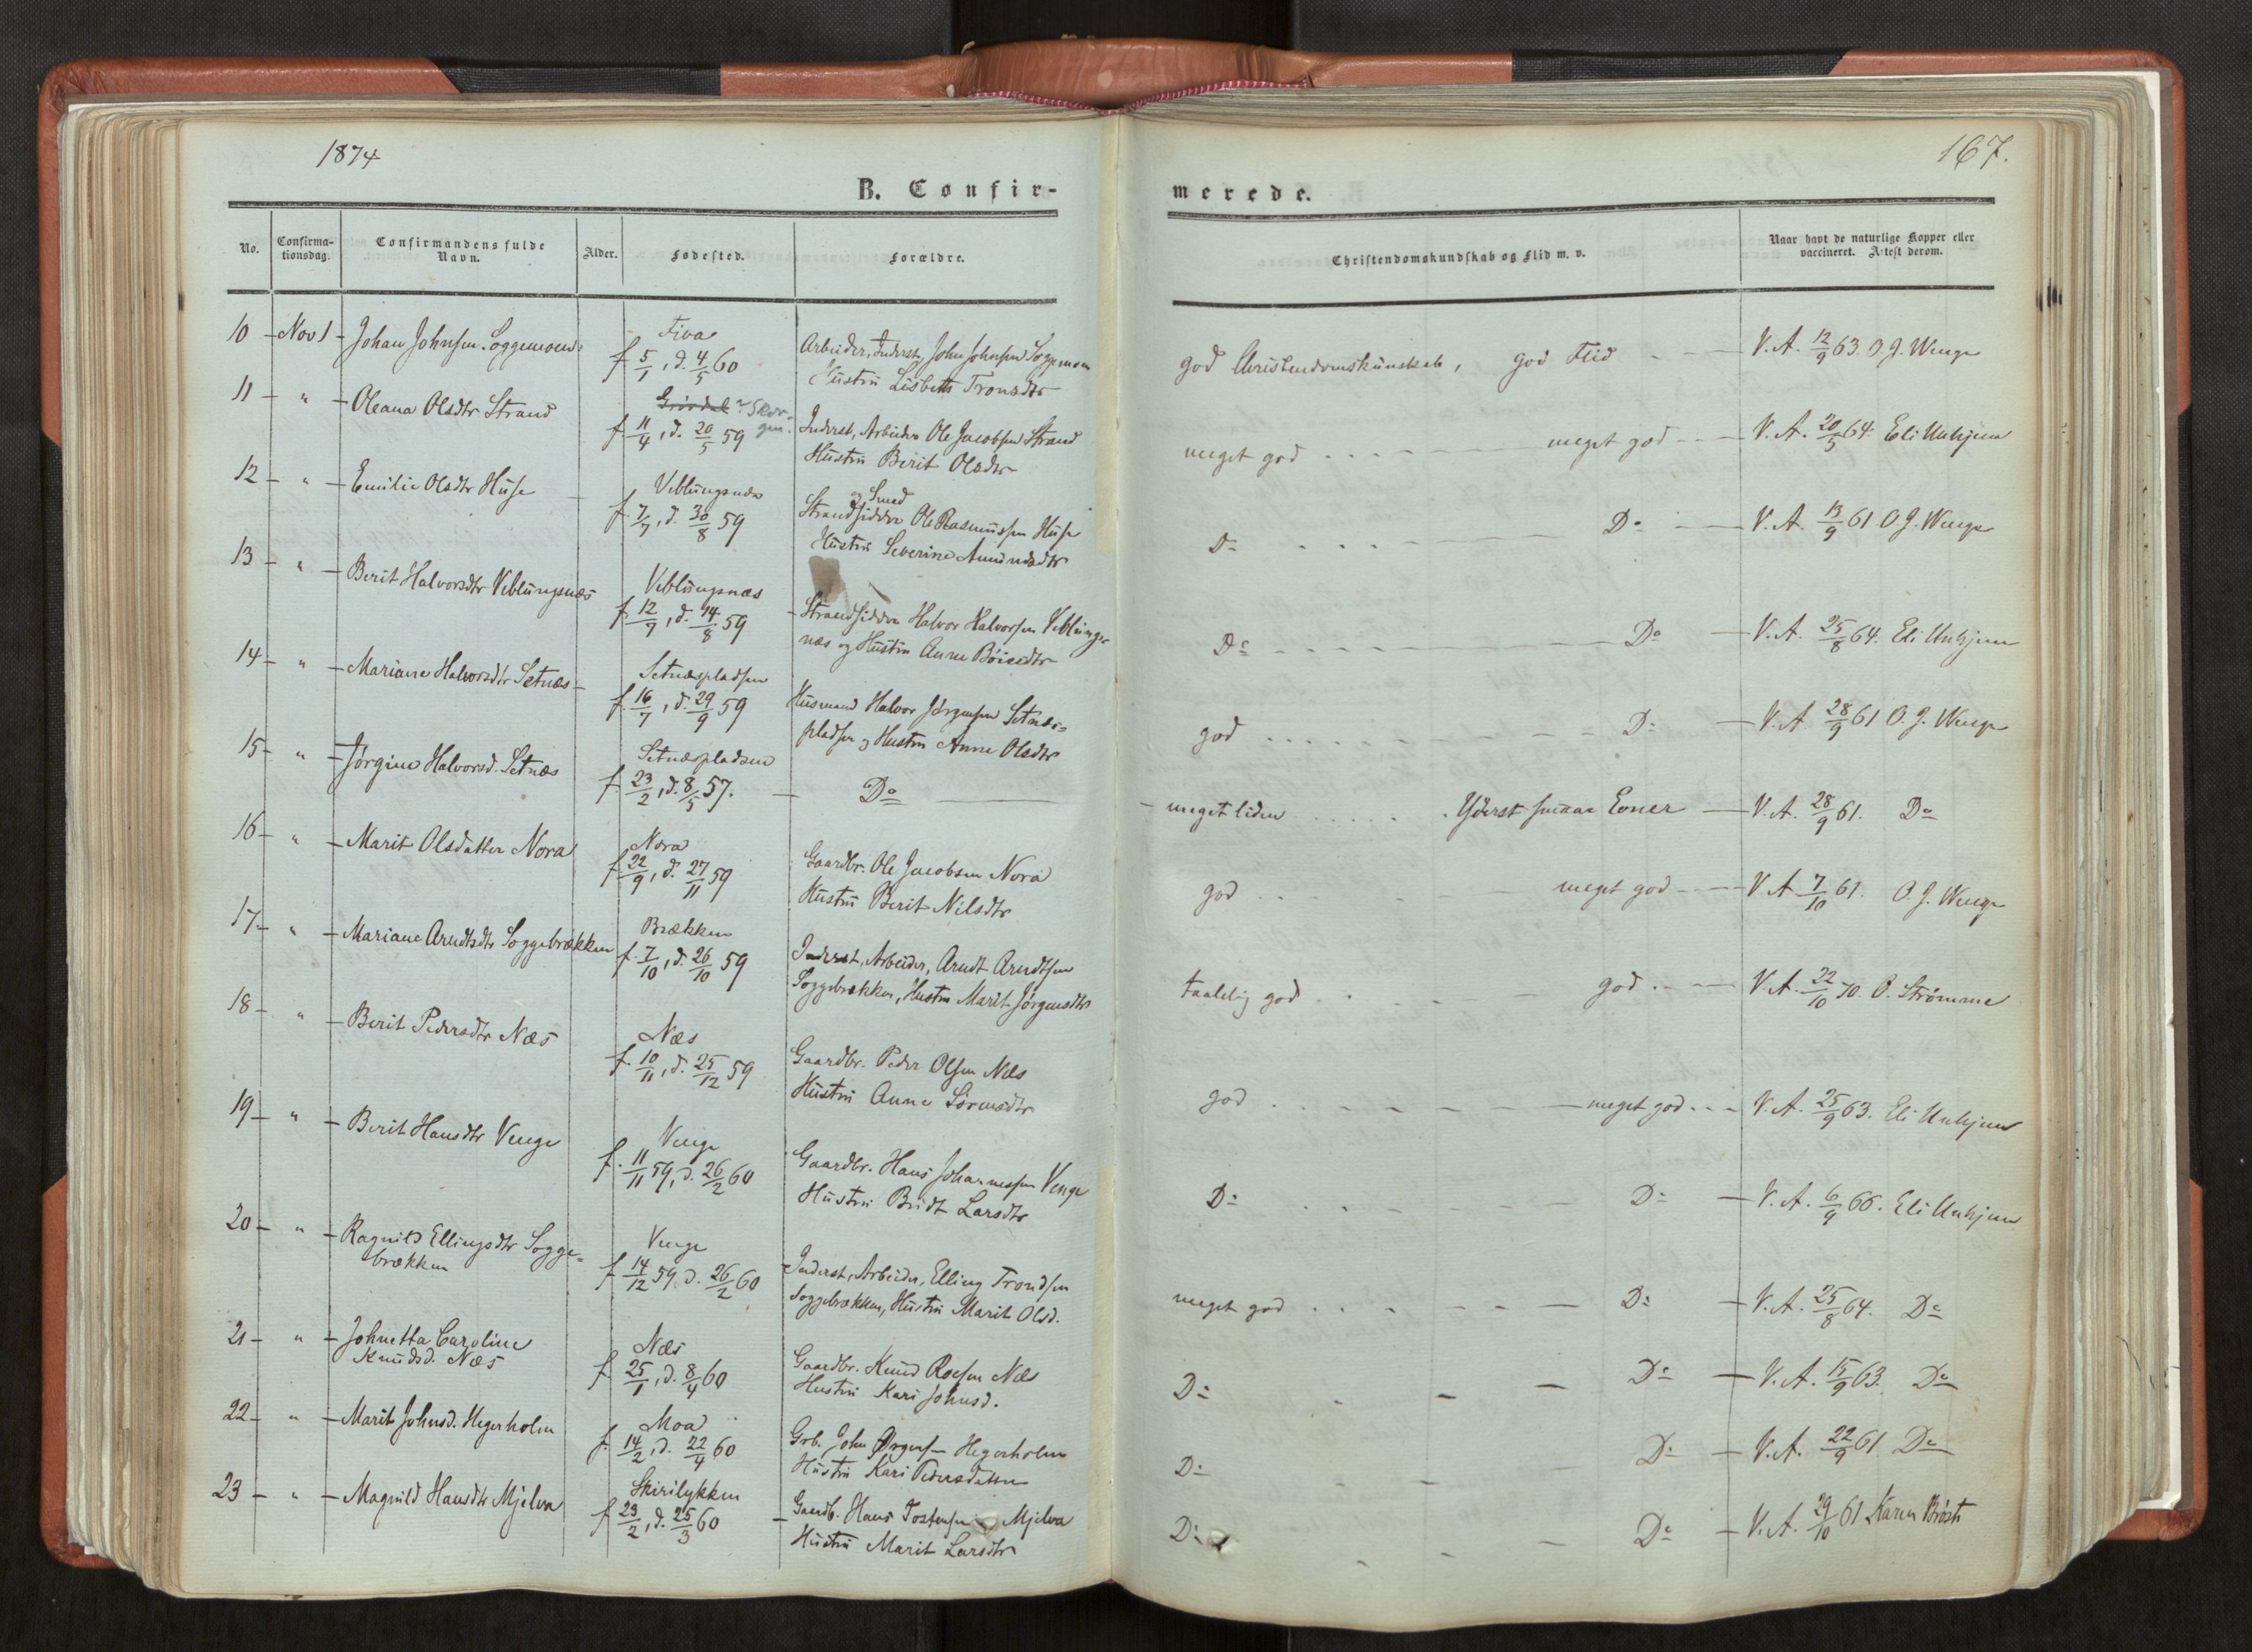 1874
167.
B. Confir-
merede.
No.
Confirma-
tionsdag.
Confirmandens fulde
Navn.
Alder.
Fødested.
Forældre.
Christendomskundskab og Flid m. v.
Naar havt de naturlige Kopper eller
vaccineret. Attest derom.
10 - Nov 1 - Johan Johnsen Soggemoen
Fiva
f. 5/1, d. 4/5 60
Arbeider, Inderst, John Johnsen Soggemoen
Hustru Lisbeth Tronsdtr
god Christendomskundskab, god Flid - V. A. 12/9 63. O. J. Wenge
11 - " - Oleana Olsdtr Strand
Skor-
gen.
f. 11/4, d. 20/5 59
Inderst, Arbeider Ole Jacobsen Strand
Hustru Berit Olsdtr
meget god - meget god - V. A. 20/5 64. Eli Unhjem
12 - " - Emilie Olsdtr Huse
Veblungsnæs
f. 7/7, d. 30/8 59
og Smed
Strandsidder Ole Rasmussen Huse
Hustru Severine Amundsdtr
Do - Do - V. A. 13/9 61 O. J. Wenge
13 - " - Berit Halvorsdtr Veblungsnæs
Veblungsnæs
f. 12/7, d. 14/8 59
- Strandsidder Halvor Halvorsen Veblungs-
næs og Hustru Anne
Do - Do - V. A. 25/8 64. Eli Unhjem
14 - " - Mariane Halvorsdtr Setnæs -
Setnæspladsen
f. 16/7, d. 29/9 59
Husmand Halvor Jørgensen Setnæs-
pladsen og Hustru Anne Olsdtr
god - Do - V. A. 28/9 61 O. J. Wenge
15 - " - Jørgine Halvorsd. Setnæs
Setnæspladsen
f. 23/2, d. 8/5 57. - Do -
- meget liden . . . . . Yderst smaae Evner - V. A. 28/9 61. Do
16 - " - Marit Olsdatter Nora
Nora
f. 22/9, d. 27/11 59
Gaardbr. Ole Jacobsen Nora
Hustru Berit Nilsdtr
god - meget god - V. A. 7/10 61. O. J. Wenge
17 - " - Mariane Arndtsdtr Soggebrækken
Brækken
f. 7/10, d. 26/10 59
Inderst, Arbeider, Arndt Arndtsen
Soggebrækken, Hustru Marit Jørgensdtr
taalelig god - god - V. A. 22/10 70. O. Strømme
18 - " - Berit Pedersdtr Næs
Næs
f. 10/11, d. 25/12 59
Gaardbr. Peder Olsen Næs
Hustru Anne
god - meget god - V. A. 25/9 63. Eli Unhjem
19 - " - Berit Hansdtr Venge
Venge
f. 11/11 59, d. 26/2 60
Gaardbr. Hans Johannessen Venge
Hustru Larsdtr
Do - Do - V. A. 6/9 66. Eli Unhjem
20 - " - Ragnild Ellingsdtr Sogge-
brækken
Venge
f. 14/12 59, d. 26/2 60
Inderst, Arbeider, Elling Trondsen
Soggebrækken, Hustru Marit Olsd.
meget god - Do - V. A. 25/8 64. Do
21 - " - Johnetta Caroline
Knudsd. Næs
Næs
f. 25/1, d. 8/4 60
Gaardbr. Knud Roesen Næs
Hustru Kari Johnsd.
Do - Do - V. A. 15/9 63. Do
22 - " - Marit Johnsd. Hegerholm
Moa
f. 14/2, d. 22/4 60
Grb. John Hegerholm
Hustru Kari Pedersdatter
Do - Do - V. A. 22/9 61 Do
23 - " - Magnild Hansdtr Mjelva
Skirilykken
f. 23/2, d. 25/3 60
- Gaardb. Hans Tostensen Mjelva
Hustru Marit Larsdtr
Do - Do - V. A. 29/10 61 Karen